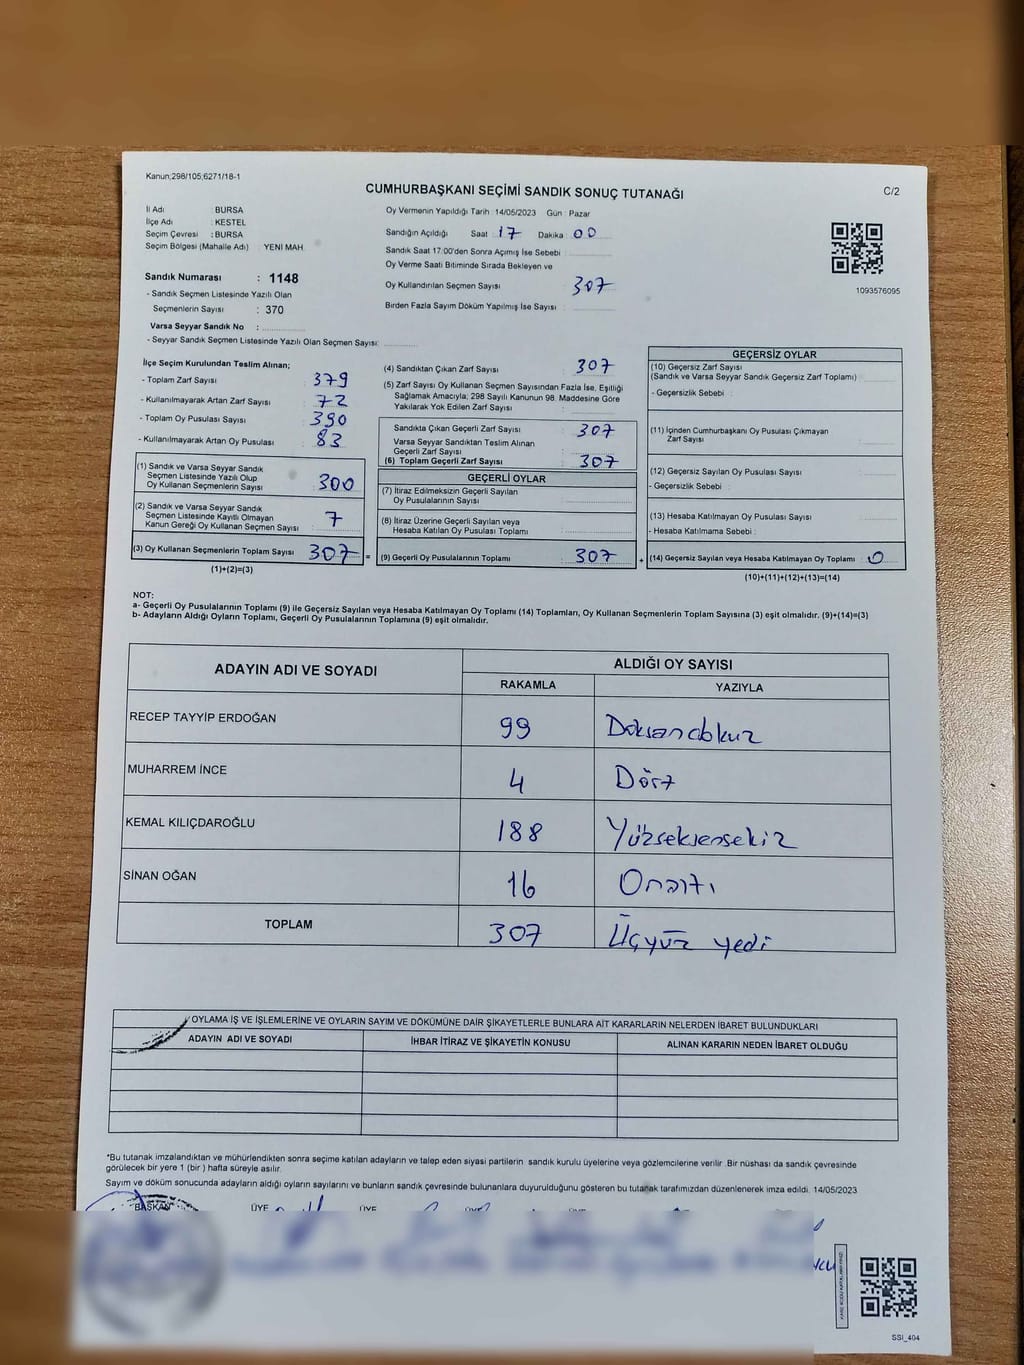 Kanun;298/105,6271/18-1
CUMHURBAŞKANI SEÇİMİ SANDIK SONUÇ TUTANAĞI
C/2
İl Adı : BURSA
İlçe Adı : KESTEL
Seçim Çevresi : BURSA
Seçim Bölgesi (Mahalle Adı) : YENİ MAH
Sandık Numarası : 1148
- Sandık Seçmen Listesinde Yazılı Olan
Seçmenlerin Sayısı : 370
Varsa Seyyar Sandık No :
- Seyyar Sandık Seçmen Listesinde Yazılı Olan Seçmen Sayısı:
Oy Vermenin Yapıldığı Tarih :14/05/2023 Gün : Pazar
Sandığın Açıldığı Saat 17 Dakika 00
Sandık Saat 17:00'den Sonra Açımış İse Sebebi :
Oy Verme Saati Bitiminde Sırada Bekleyen ve
Oy Kullandırılan Seçmen Sayısı 307
Birden Fazla Sayım Döküm Yapılmış İse Sayısı :
1093576095
İlçe Seçim Kurulundan Teslim Alınan;
- Toplam Zarf Sayısı 379
- Kullanılmayarak Artan Zarf Sayısı 72
- Toplam Oy Pusulası Sayısı 390
- Kullanılmayarak Artan Oy Pusulası 83
(1) Sandık ve Varsa Seyyar Sandık
Seçmen Listesinde Yazılı Olup
Oy Kullanan Seçmenlerin Sayısı 300
(2) Sandık ve Varsa Seyyar Sandık
Seçmen Listesinde Kayıtlı Olmayan
Kanun Gereği Oy Kullanan Seçmen Sayısı : 7
(3) Oy Kullanan Seçmenlerin Toplam Sayısı 307 =
(1)+(2)=(3)
(4) Sandıktan Çıkan Zarf Sayısı : 307
(5) Zarf Sayısı Oy Kullanan Seçmen Sayısından Fazla İse, Eşitliği
Sağlamak Amacıyla; 298 Sayılı Kanunun 98. Maddesine Göre
Yakılarak Yok Edilen Zarf Sayısı :
Sandıkta Çıkan Geçerli Zarf Sayısı : 307
Varsa Seyyar Sandıktan Teslim Alınan
Geçerli Zarf Sayısı :
(6) Toplam Geçerli Zarf Sayısı : 307
GEÇERLİ OYLAR
(7) İtiraz Edilmeksizin Geçerli Sayılan
Oy Pusulalarının Sayısı :
(8) İtiraz Üzerine Geçerli Sayılan veya
Hesaba Katılan Oy Pusulaları Toplamı :
(9) Geçerli Oy Pusulalarının Toplamı : 307 +
GEÇERSİZ OYLAR
(10) Geçersiz Zarf Sayısı
(Sandık ve Varsa Seyyar Sandık Geçersiz Zarf Toplamı) :
- Geçersizlik Sebebi :
(11) İçinden Cumhurbaşkanı Oy Pusulası Çıkmayan
Zarf Sayısı :
(12) Geçersiz Sayılan Oy Pusulası Sayısı :
- Geçersizlik Sebebi :
(13) Hesaba Katılmayan Oy Pusulası Sayısı :
- Hesaba Katılmama Sebebi :
(14) Geçersiz Sayılan veya Hesaba Katılmayan Oy Toplamı : 0
(10)+(11)+(12)+(13)=(14)
NOT:
a- Geçerli Oy Pusulalarının Toplamı (9) ile Geçersiz Sayılan veya Hesaba Katılmayan Oy Toplamı (14) Toplamları, Oy Kullanan Seçmenlerin Toplam Sayısına (3) eşit olmalıdır. (9)+(14)=(3)
b- Adayların Aldığı Oyların Toplamı, Geçerli Oy Pusulalarının Toplamına (9) eşit olmalıdır.
ADAYIN ADI VE SOYADI ALDIĞI OY SAYISI
RAKAMLA YAZIYLA
RECEP TAYYİP ERDOĞAN 99 Doksandokuz
MUHARREM İNCE 4 Dört
KEMAL KILIÇDAROĞLU 188 Yüzseksensekiz
SİNAN OĞAN 16 Onaltı
TOPLAM 307 Üçyüz yedi
OYLAMA İŞ VE İŞLEMLERİNE VE OYLARIN SAYIM VE DÖKÜMÜNE DAİR ŞİKAYETLERLE BUNLARA AİT KARARLARIN NELERDEN İBARET BULUNDUKLARI
ADAYIN ADI VE SOYADI İHBAR İTİRAZ VE ŞİKAYETİN KONUSU ALINAN KARARIN NEDEN İBARET OLDUĞU
*Bu tutanak imzalandıktan ve mühürlendikten sonra seçime katılan adayların ve talep eden siyasi partilerin sandık kurulu üyelerine veya gözlemcilerine verilir .Bir nüshası da sandık çevresinde
görülecek bir yere 1 (bir ) hafta süreyle asılır.
Sayım ve döküm sonucunda adayların aldığı oyların sayılarını ve bunların sandık çevresinde bulunanlara duyurulduğunu gösteren bu tutanak tarafımızdan düzenlenerek imza edildi. 14/05/2023
BAŞKAN ÜYE ÜYE ÜYE ÜYE
SSI_404